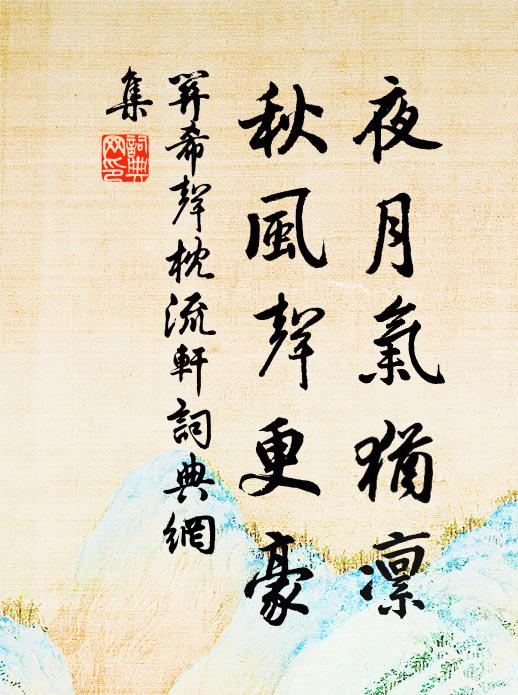 夜月氣猶凜
秋風聲更豪
開希聲枕流軒詞典網
集
詞典
网印